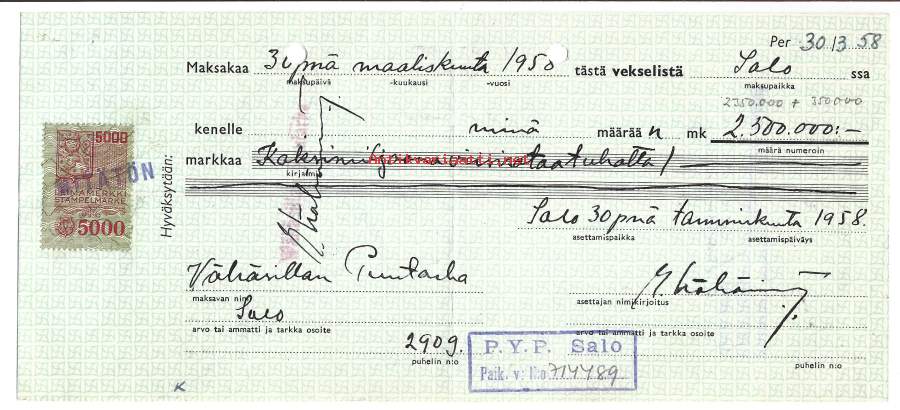 Per 30/3 58
Maksakaa 30 pnä maaliskuuta 1958 tästä vekselistä Salo ssa
maksupäivä -kuukausi -vuosi maksupaikka
2350.000 + 350.000
kenelle minä määrää n mk 2.500.000:-
määrä numeroin
markkaa Kaksimiljoonaaviisisataatuhatta/
kirjaimin
5000
LEIMAMERKKI
STAMPELMARKE
5000
Hyväksytään:
Salo 30 pnä tammikuuta 1958.
asettamispaikka asettamispäiväys
Vähäsillan Puutarha
maksavan nimi asettajan nimikirjoitus
Salo
arvo tai ammatti ja tarkka osoite arvo tai ammatti ja tarkka osoite
2909.
puhelin n:o puhelin n:o
P.Y.P. Salo
Paik. v: N:o 714489
K